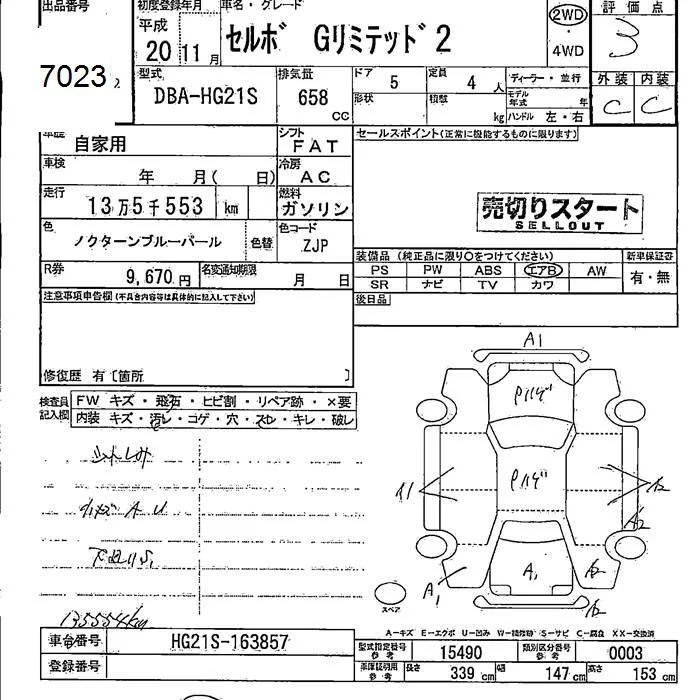 出品番号 初度登録年月 車名・グレード 2WD 評価点
平成 20 11月 セルボ Gリミテッド2 4WD 3
7023 2
型式 排気量 ドア 5 定員 4人 ディーラー・並行 外装 内装
DBA-HG21S 658 CC 形状 積載 kg モデル年式 年 C C
ハンドル 左・右
車歴 自家用 シフト FAT セールスポイント(正常に機能するものに限ります)
車検 年 月( 日) 冷房 AC
走行 13万5千553 km 燃料 ガソリン 売切りスタート
SELLOUT
色 ノクターンブルーパール 色替 色コード ZJP
装備品 (純正品に限り○をつけてください) 新車保証書
R券 9,670円 名変通知期限 月 日 PS PW ABS エアB AW 有・無
SR ナビ TV カワ
注意事項申告欄(不具合内容等は具体的に記入して下さい) 後日品
修復歴 有〔箇所 〕
検査員記入欄 FW キズ・飛石・ヒビ割・リペア跡・×要
内装 キズ・汚レ・コゲ・穴・スレ・キレ・破レ
A1
A U
下廻りS1
A1 A1 A2
A2
135554km
スペア
A-キズ E-エクボ U-凹み W-補修跡 S-サビ C-腐食 XX-交換済
車台番号 HG21S-163857 型式指定番号 参考 15490 類別区分番号 参考 0003
登録番号 車庫証明用 参考 長さ 339cm 幅 147cm 高さ 153cm